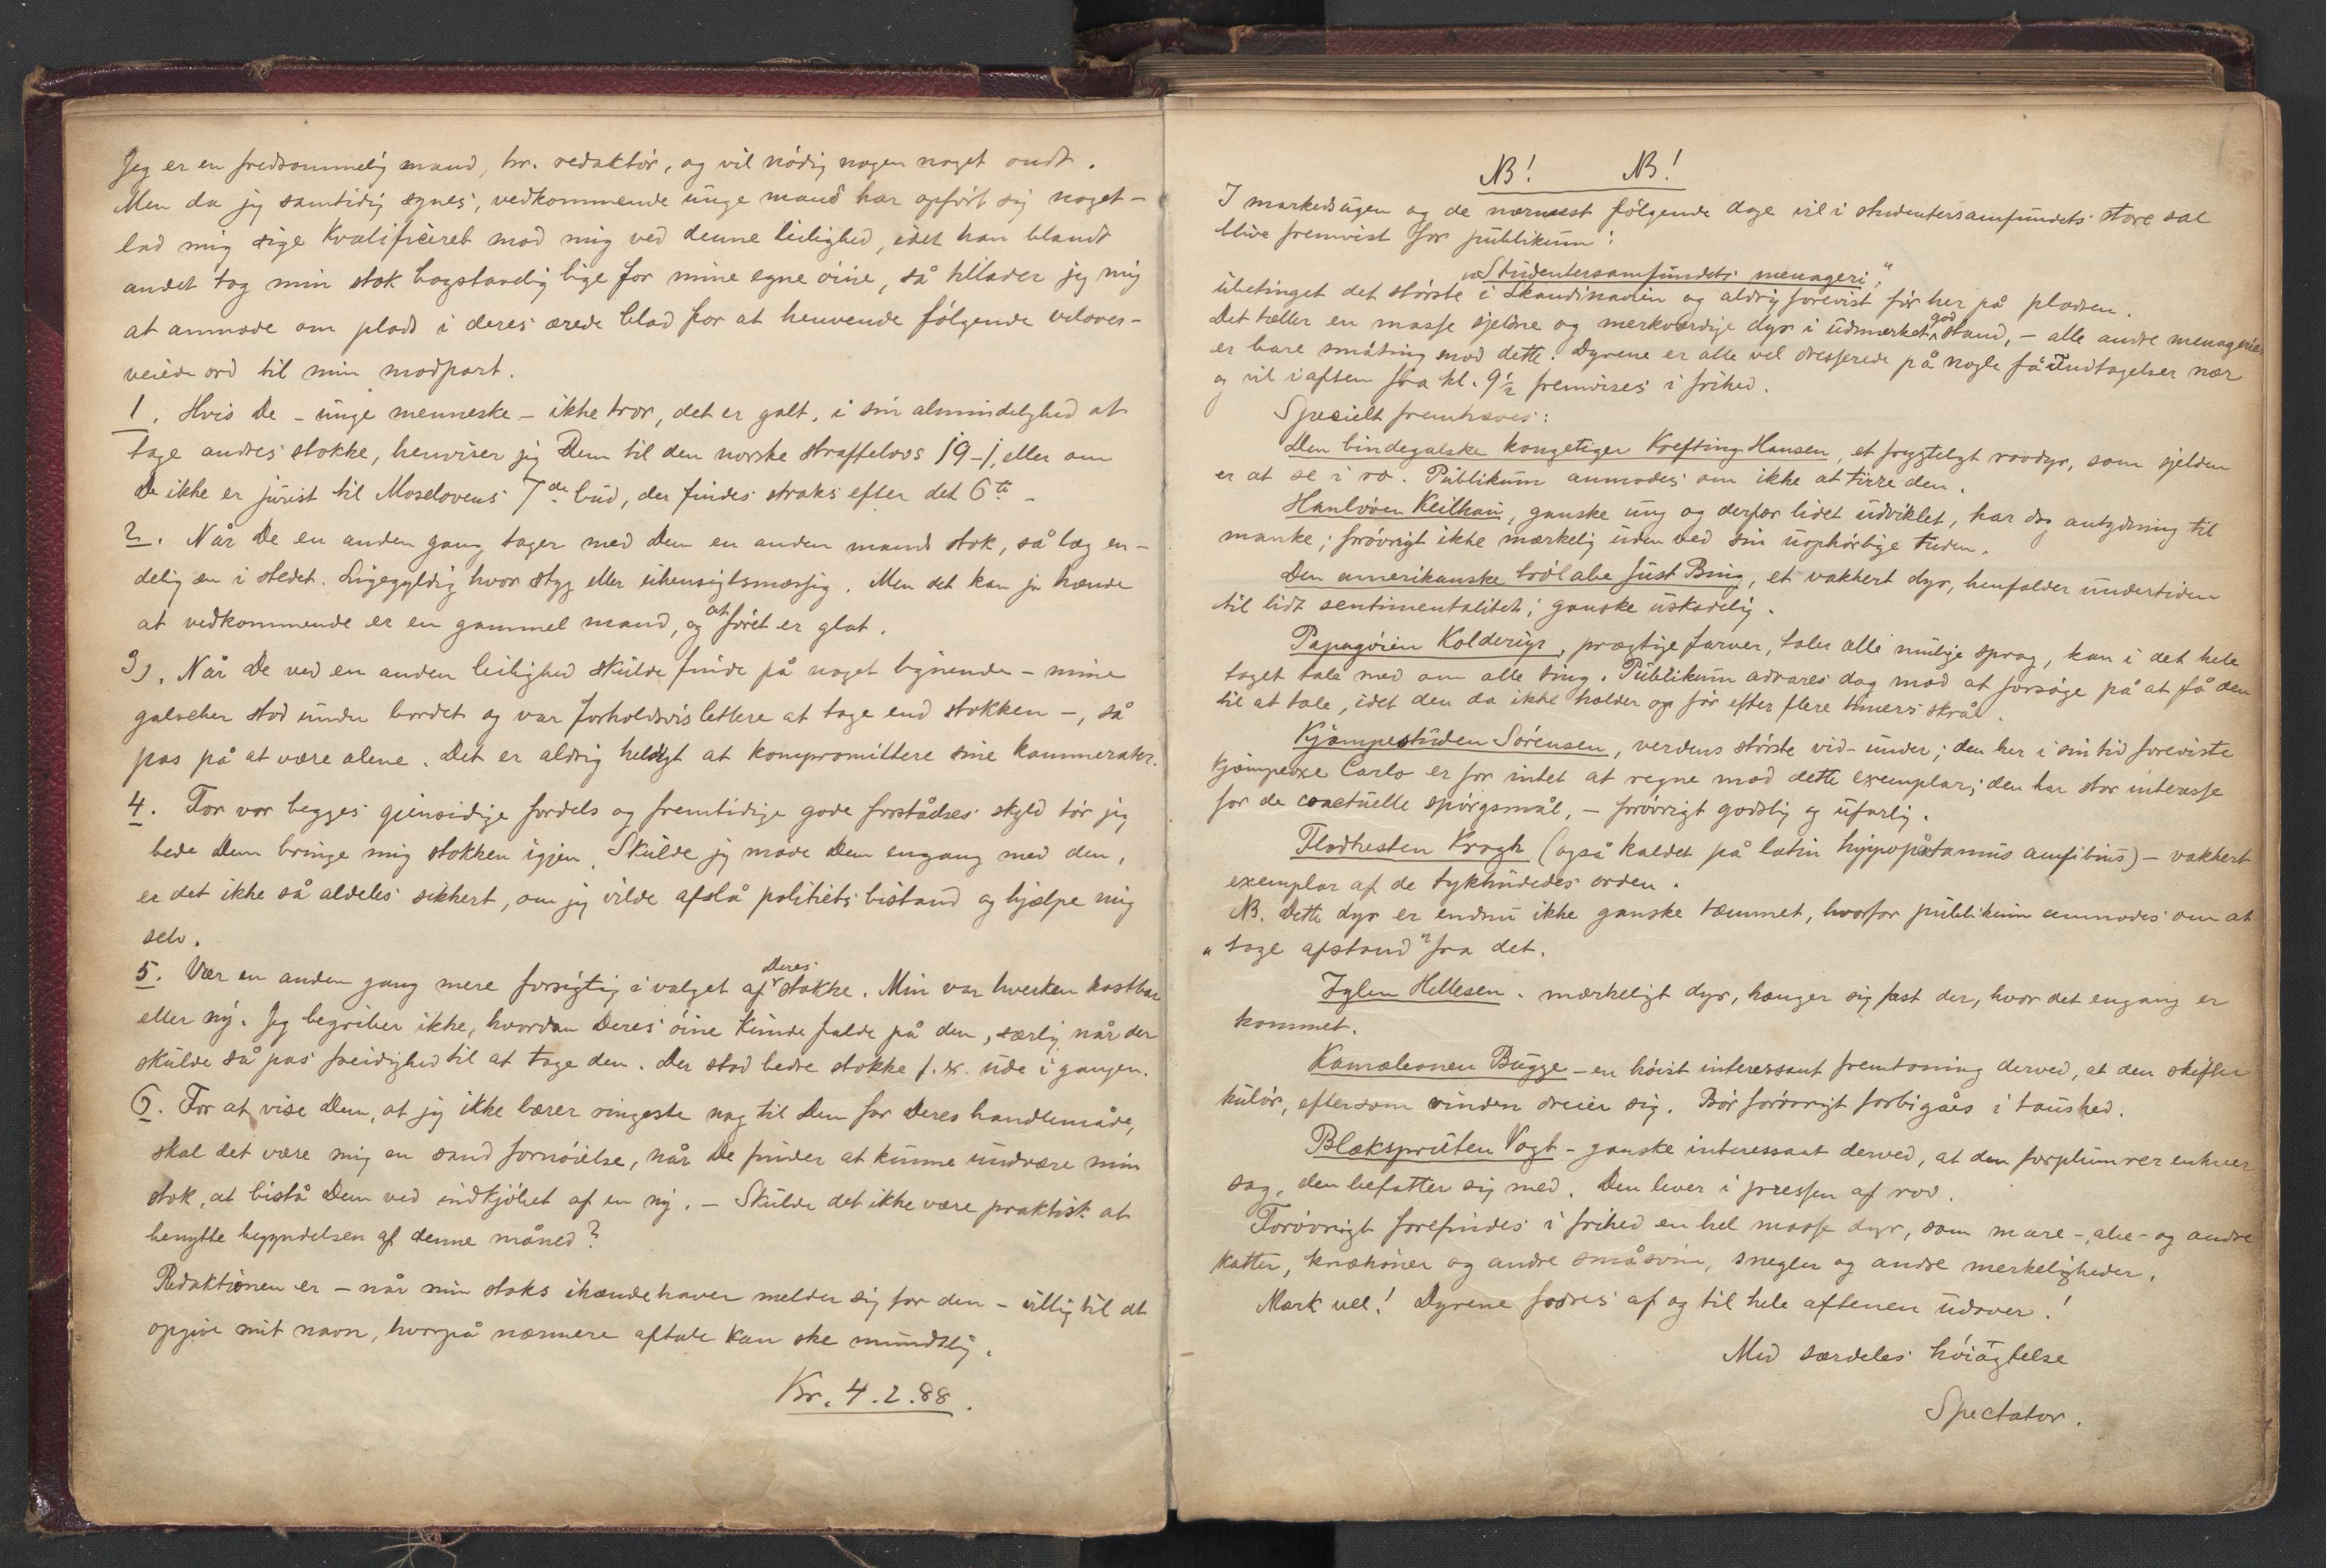 Jeg er en fredsommelig mand, hr. redaktör, og vil nödig nogen noget ondt.
Men da jeg samtidig synes, vedkommende unge mand har opfört sig noget –
lad mig sige kvalificeret mod mig ved denne leilighed, idet han blandt
andet tog min stok bogstavelig lige for mine egne öine, så tillader jeg mig
at anmode om plads i deres ærede blad for at henvende fölgende velover-
veiede ord til min modpart.
1. Hvis De – unge menneske – ikke tror, det er galt, i sin almindelighed at
tage andres stokke, henviser jeg Dem til den norske straffelovs 19–1, eller om
De ikke er jurist til Moselovens 7de bud, der findes straks efter det 6te –
2. Når De en anden gang tager med Dem en anden mands stok, så læg en-
delig en i stedet. Ligegyldig hvor styg eller uhensigtsmæssig. Men det kan jo hænde
at vedkommende er en gammel mand, og at föret er glat.
3). Når De ved en anden leilighed skulde finde på noget lignende – mine
galocher stod under bordet og var forholdsvis lettere at tage end stokken –, så
pas på at være alene. Det er aldrig heldigt at kompromittere sine kammerater.
4. For vor begges gjensidige fordels og fremtidige gode forståelses skyld tör jeg
bede Dem bringe mig stokken igjen. Skulde jeg möde Dem engang med den,
er det ikke så aldeles sikkert, om jeg vilde afslå politiets bistand og hjælpe mig
selv.
5. Vær en anden gang mere forsigtig i valget af Deres stokke. Min var hverken kostbar
eller ny. Jeg begriber ikke, hvordan Deres öine kunde falde på den, særlig når der
skulde så pas freidighed til at tage den. Der stod bedre stokke f. ex. ude i gangen.
6. For at vise Dem, at jeg ikke bærer ringeste nag til Dem for Deres handlemåde,
skal det være mig en sand fornöielse, når De finder at kunne undvære min
stok, at bistå Dem ved indkjöbet af en ny. – Skulde det ikke være praktisk at
benytte begyndelsen af denne måned?
Redaktionen er – når min stoks ihændehaver melder sig for den – villig til at
opgive mit navn, hvorpå nærmere aftale kan ske mundtlig.
Kr. 4.2.88.
NB! NB!
I markedsugen og de nærmest fölgende dage vil i studentersamfundets store sal
blive fremvist for publikum:
"Studentersamfundets menageri",
ubetinget det störste i Skandinavien og aldrig forevist för her på pladsen.
Det tæller en masse sjeldne og merkværdige dyr i udmærket god stand, – alle andre menagerier
er bare småting mod dette. Dyrene er alle vel dresserede på nogle få undtagelser nær
og vil iaften fra kl. 9½ fremvises i frihed.
Specielt fremhæves:
Den bindegalske kongetiger Krefting-Hansen, et frygteligt rovdyr, som sjelden
er at se i ro. Publikum anmodes om ikke at tirre den.
Hanlöven Keilhau, ganske ung og derfor lidet udviklet, har dog antydning til
manke; forövrigt ikke mærkelig uden ved sin uophörlige tuden.
Den amerikanske brölabe Just Bing, et vakkert dyr, henfalder undertiden
til lidt sentimentalitet; ganske uskadelig.
Papagöien Kolderup, prægtige farver, taler alle mulige sprog, kan i det hele
taget tale med om alle ting. Publikum advares dog mod at forsöge på at få den
til at tale, idet den da ikke holder op för efter flere timers skrål.
Kjæmpestuden Sörensen, verdens störste vid-under; den her i sin tid foreviste
kjæmpeoxe Carlo er for intet at regne mod dette exemplar; den har stor interesse
for de coactuelle spörgsmål, – forövrigt godslig og ufarlig.
Flodhesten Krogh (også kaldet på latin hyppopotamus amfibius) – vakkert
exemplar af de tykhudedes orden.
NB. Dette dyr er endnu ikke ganske tæmmet, hvorfor publikum anmodes om at
"tage afstand" fra det.
Iglen Hellesen. mærkeligt dyr, hænger sig fast der, hvor det engang er
kommet.
Kamæleonen Bugge – en höist interessant fremtoning derved, at den skifter
kulör, eftersom vinden dreier sig. Bör forövrigt forbigåes i taushed.
Blæksprutten Vogt – ganske interessant derved, at den forplumrer enhver
sag, den befatter sig med. Den lever i pressen af rov.
Forövrigt forefindes i frihed en hel masse dyr, som mare-, abe- og andre
katter, knæhöner og andre småsvin, snegler og andre merkeligheder.
Mærk vel! Dyrene fodres af og til hele aftenen udover!
Med særdeles höiagtelse
Spectator.